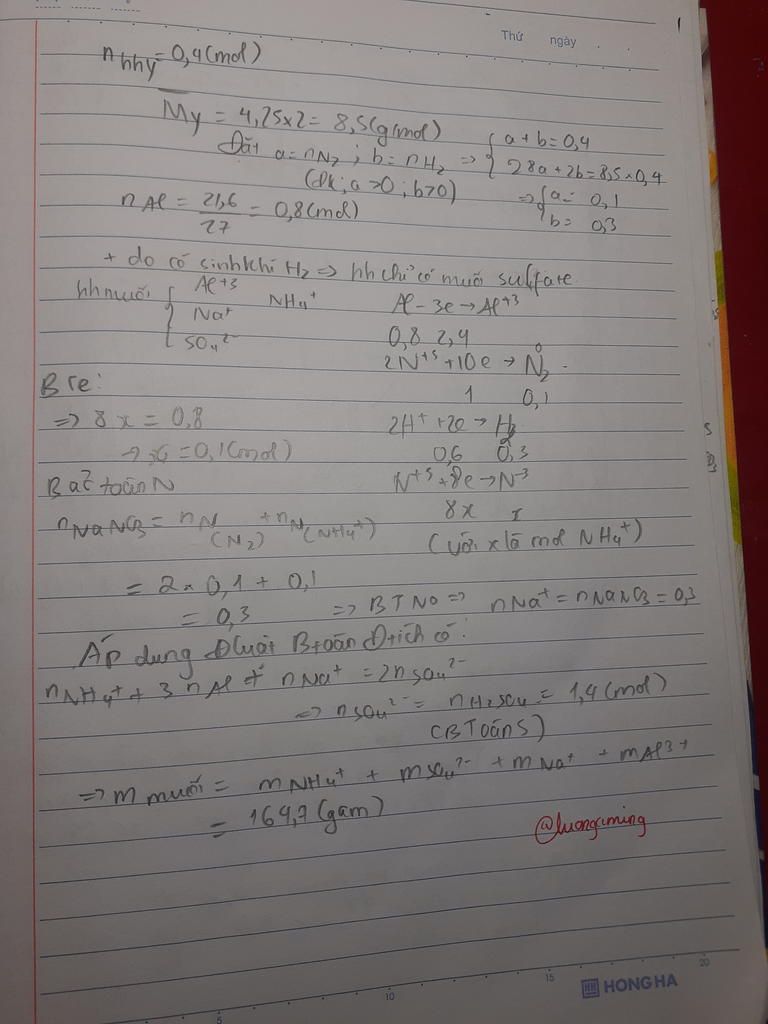 Thứ ngày . .
n hhy = 0,4 (mol)
My = 4,25x2 = 8,5 (g/mol)
Đặt a = nN2 ; b = nH2 => { a + b = 0,4
28a + 2b = 8,5 x 0,4
(đk: a >0 ; b>0) => { a = 0,1
b = 0,3
nAl = 21,6/27 = 0,8 (mol)
+ do có sinh khí H2 => hh chỉ có muối sulfate
hh muối { Al+3 NH4+
Na+
SO4 2-
Al - 3e → Al+3
0,8 2,4
2N+5 + 10e → N2 0
1 0,1
BTe:
=> 8x = 0,8
→ x = 0,1 (mol)
2H+ + 2e → H2
0,6 0,3
N+5 + 8e → N-3
8x x
(với x là mol NH4+)
Bảo toàn N
nNaNO3 = nN (N2) + nN (NH4+)
= 2 x 0,1 + 0,1
= 0,3 => BTNa => nNa+ = nNaNO3 = 0,3
Áp dụng Đluật Btoàn Đtích có:
nNH4+ + 3nAl + nNa+ = 2nSO4 2-
=> nSO4 2- = nH2SO4 = 1,4 (mol)
(BToàn S)
=> m muối = mNH4+ + mSO4 2- + mNa+ + mAl3+
= 164,7 (gam)
@luongiming
5 10 15 20
HH HONG HA